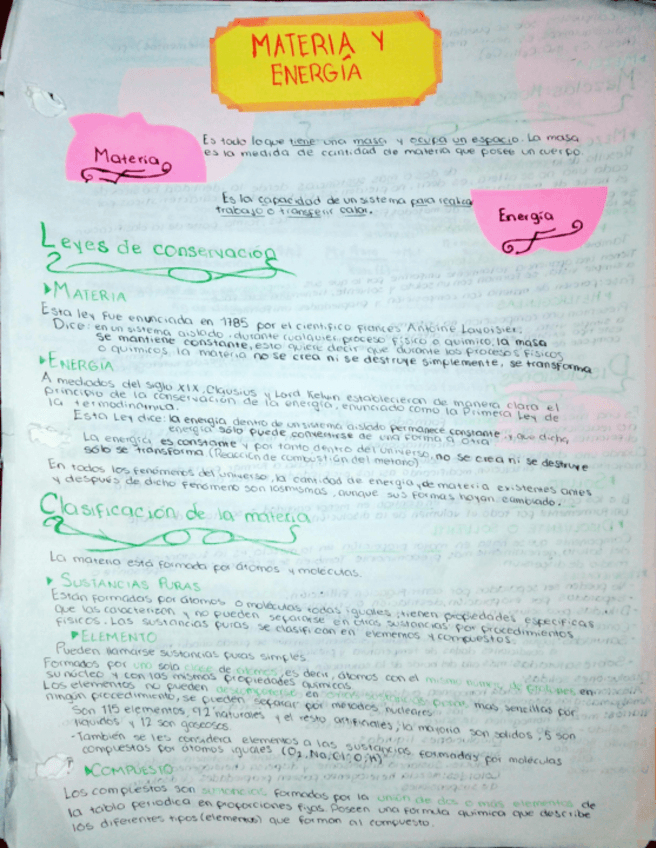 MATERIA Y
ENERGÍA
Materia
Es todo lo que tiene una masa y ocupa un espacio. La masa
es la medida de cantidad de materia que posee un cuerpo.
Es la capacidad de un sistema para realizar
trabajo o transferir calor.
Energía
Leyes de conservación
▸MATERIA
Esta ley fue enunciada en 1785 por el científico francés Antoine Lavoisier.
Dice: en un sistema aislado, durante cualquier proceso físico o químico, la masa
se mantiene constante, esto quiere decir que durante los procesos físicos
o químicos, la materia no se crea ni se destruye simplemente, se transforma
▸ENERGÍA
A mediados del siglo XIX, Clausius y Lord Kelvin establecieron de manera clara el
principio de la conservación de la energía, enunciado como la Primera Ley de
la termodinámica.
Esta Ley dice: la energía dentro de un sistema aislado permanece constante y que dicha
energía sólo puede convertirse de una forma a otra
La energía es constante y por tanto dentro del universo, no se crea ni se destruye
sólo se transforma (Reacción de combustión del metano)
En todos los fenómenos del universo, la cantidad de energía y de materia existentes antes
y después de dicho fenómeno son las mismas, aunque sus formas hayan cambiado.
Clasificación de la materia
La materia está formada por átomos y moléculas.
▸ SUSTANCIAS PURAS
Están formadas por átomos o moléculas todas iguales, tienen propiedades específicas
que las caracterizan y no pueden separarse en otras sustancias por procedimientos
físicos. Las sustancias puras se clasifican en elementos y compuestos.
▸ELEMENTO
Pueden llamarse sustancias puras simples.
Formados por una sola clase de átomos, es decir, átomos con el mismo número de protones en
su núcleo y con las mismas propiedades químicas.
Los elementos no pueden descomponerse en otras sustancias puras más sencillas por
ningún procedimiento, se pueden separar por métodos nucleares
Son 115 elementos, 92 naturales y el resto artificiales, la mayoría son sólidos, 5 son
líquidos y 12 son gaseosos.
-También se les considera elementos a las sustancias formadas por moléculas
compuestas por átomos iguales
▸COMPUESTO
Los compuestos son sustancias formados por la unión de dos o más elementos de
la tabla periódica en proporciones fijas. Poseen una fórmula química que describe
los diferentes tipos (elementos) que forman al compuesto.